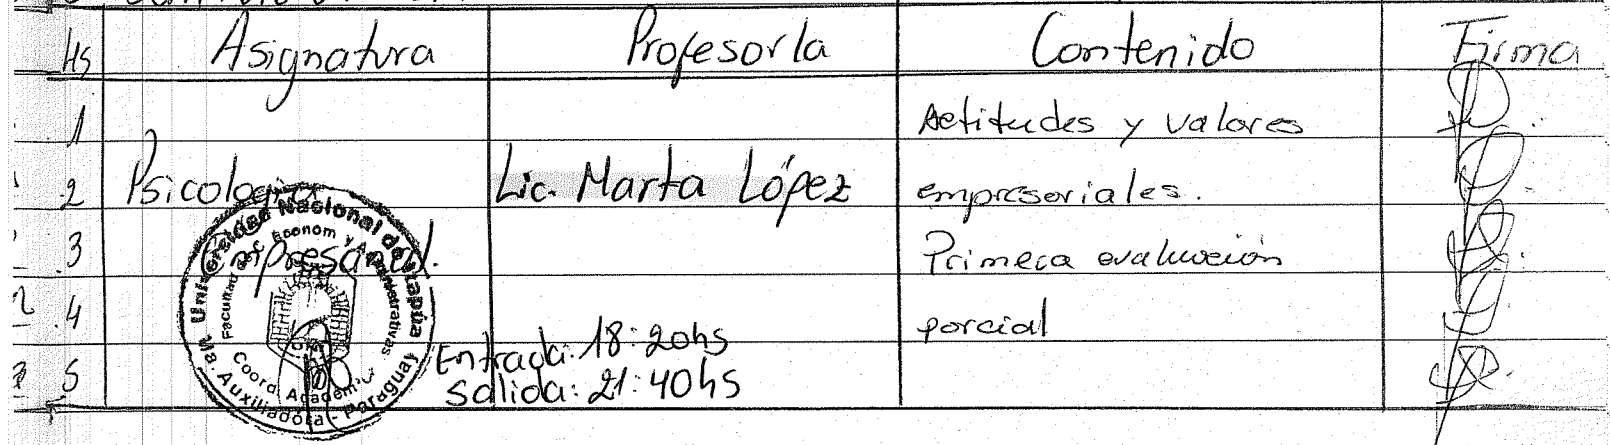 Hs Asignatura Profesor/a Contenido Firma
1 Actitudes y valores
2 Psicología Lic. Marta López empresariales.
3 Empresarial. Primera evaluación
4 parcial
Entrada: 18:20hs
5 Salida: 21:40hs
Universidad Nacional de Itapúa
Facultad de Econom y Administrativas
Coord. Académica
Ma. Auxiliadora - Paraguay